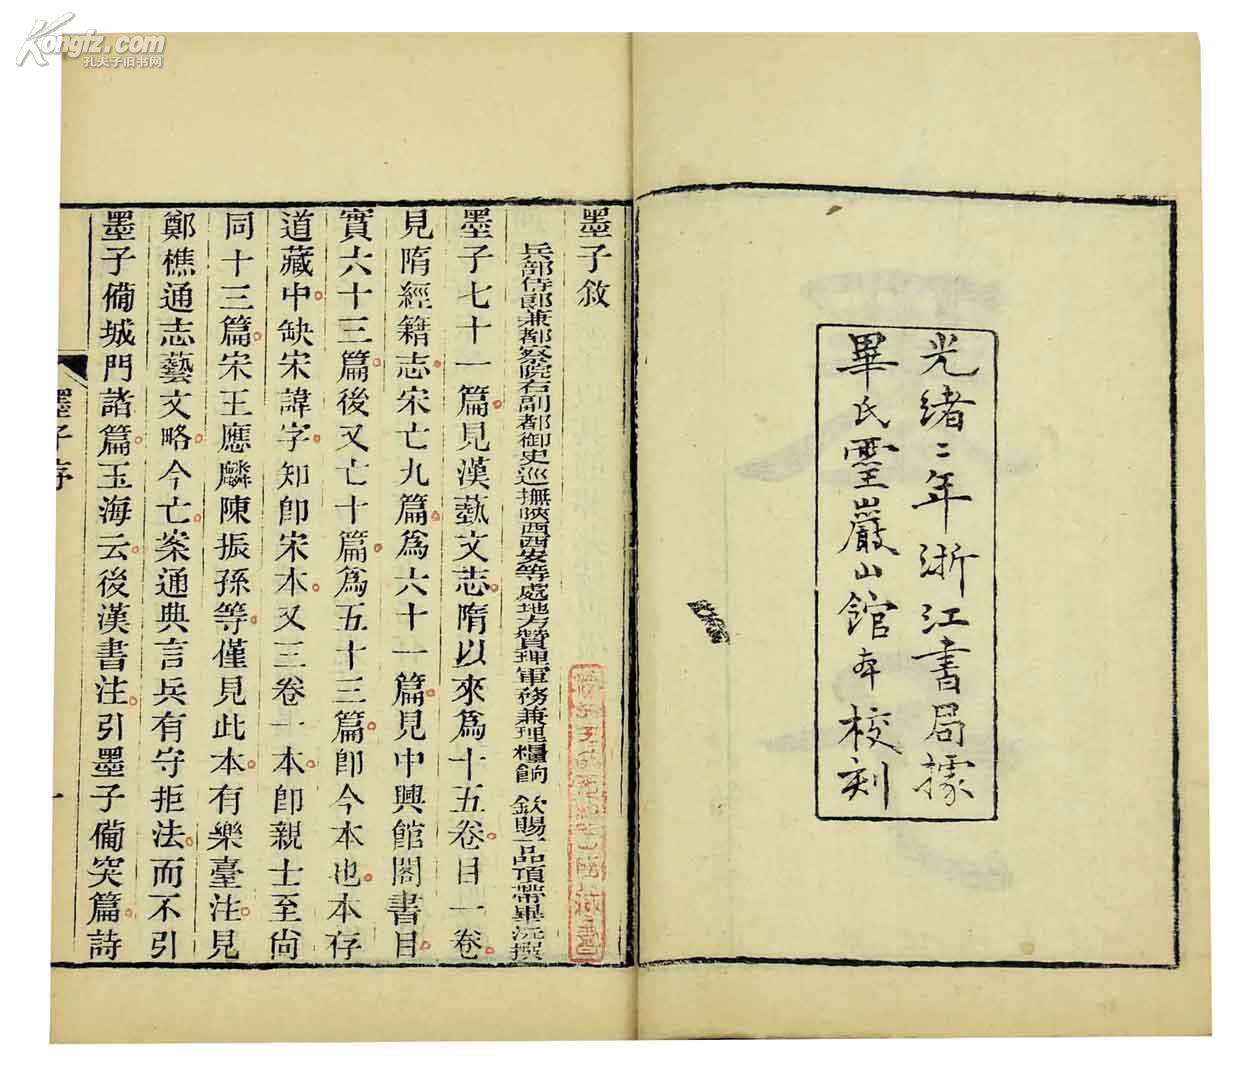 Kongfz.com
孔夫子旧书网
光緒二年浙江書局據
畢氏靈巖山館本校刻
墨子敘
兵部侍郎兼都察院右副都御史巡撫陝西西安等處地方贊理軍務兼理糧餉 欽賜一品頂帶畢沅撰
墨子七十一篇見漢藝文志隋以來為十五卷目一卷
見隋經籍志宋亡九篇為六十一篇見中興館閣書目
實六十三篇後又亡十篇為五十三篇即今本也本存
道藏中缺宋諱字知即宋本又三卷一本即親士至尙
同十三篇宋王應麟陳振孫等僅見此本有樂臺注見
鄭樵通志藝文略今亡案通典言兵有守拒法而不引
墨子備城門諸篇玉海云後漢書注引墨子備突篇詩
墨子序
一